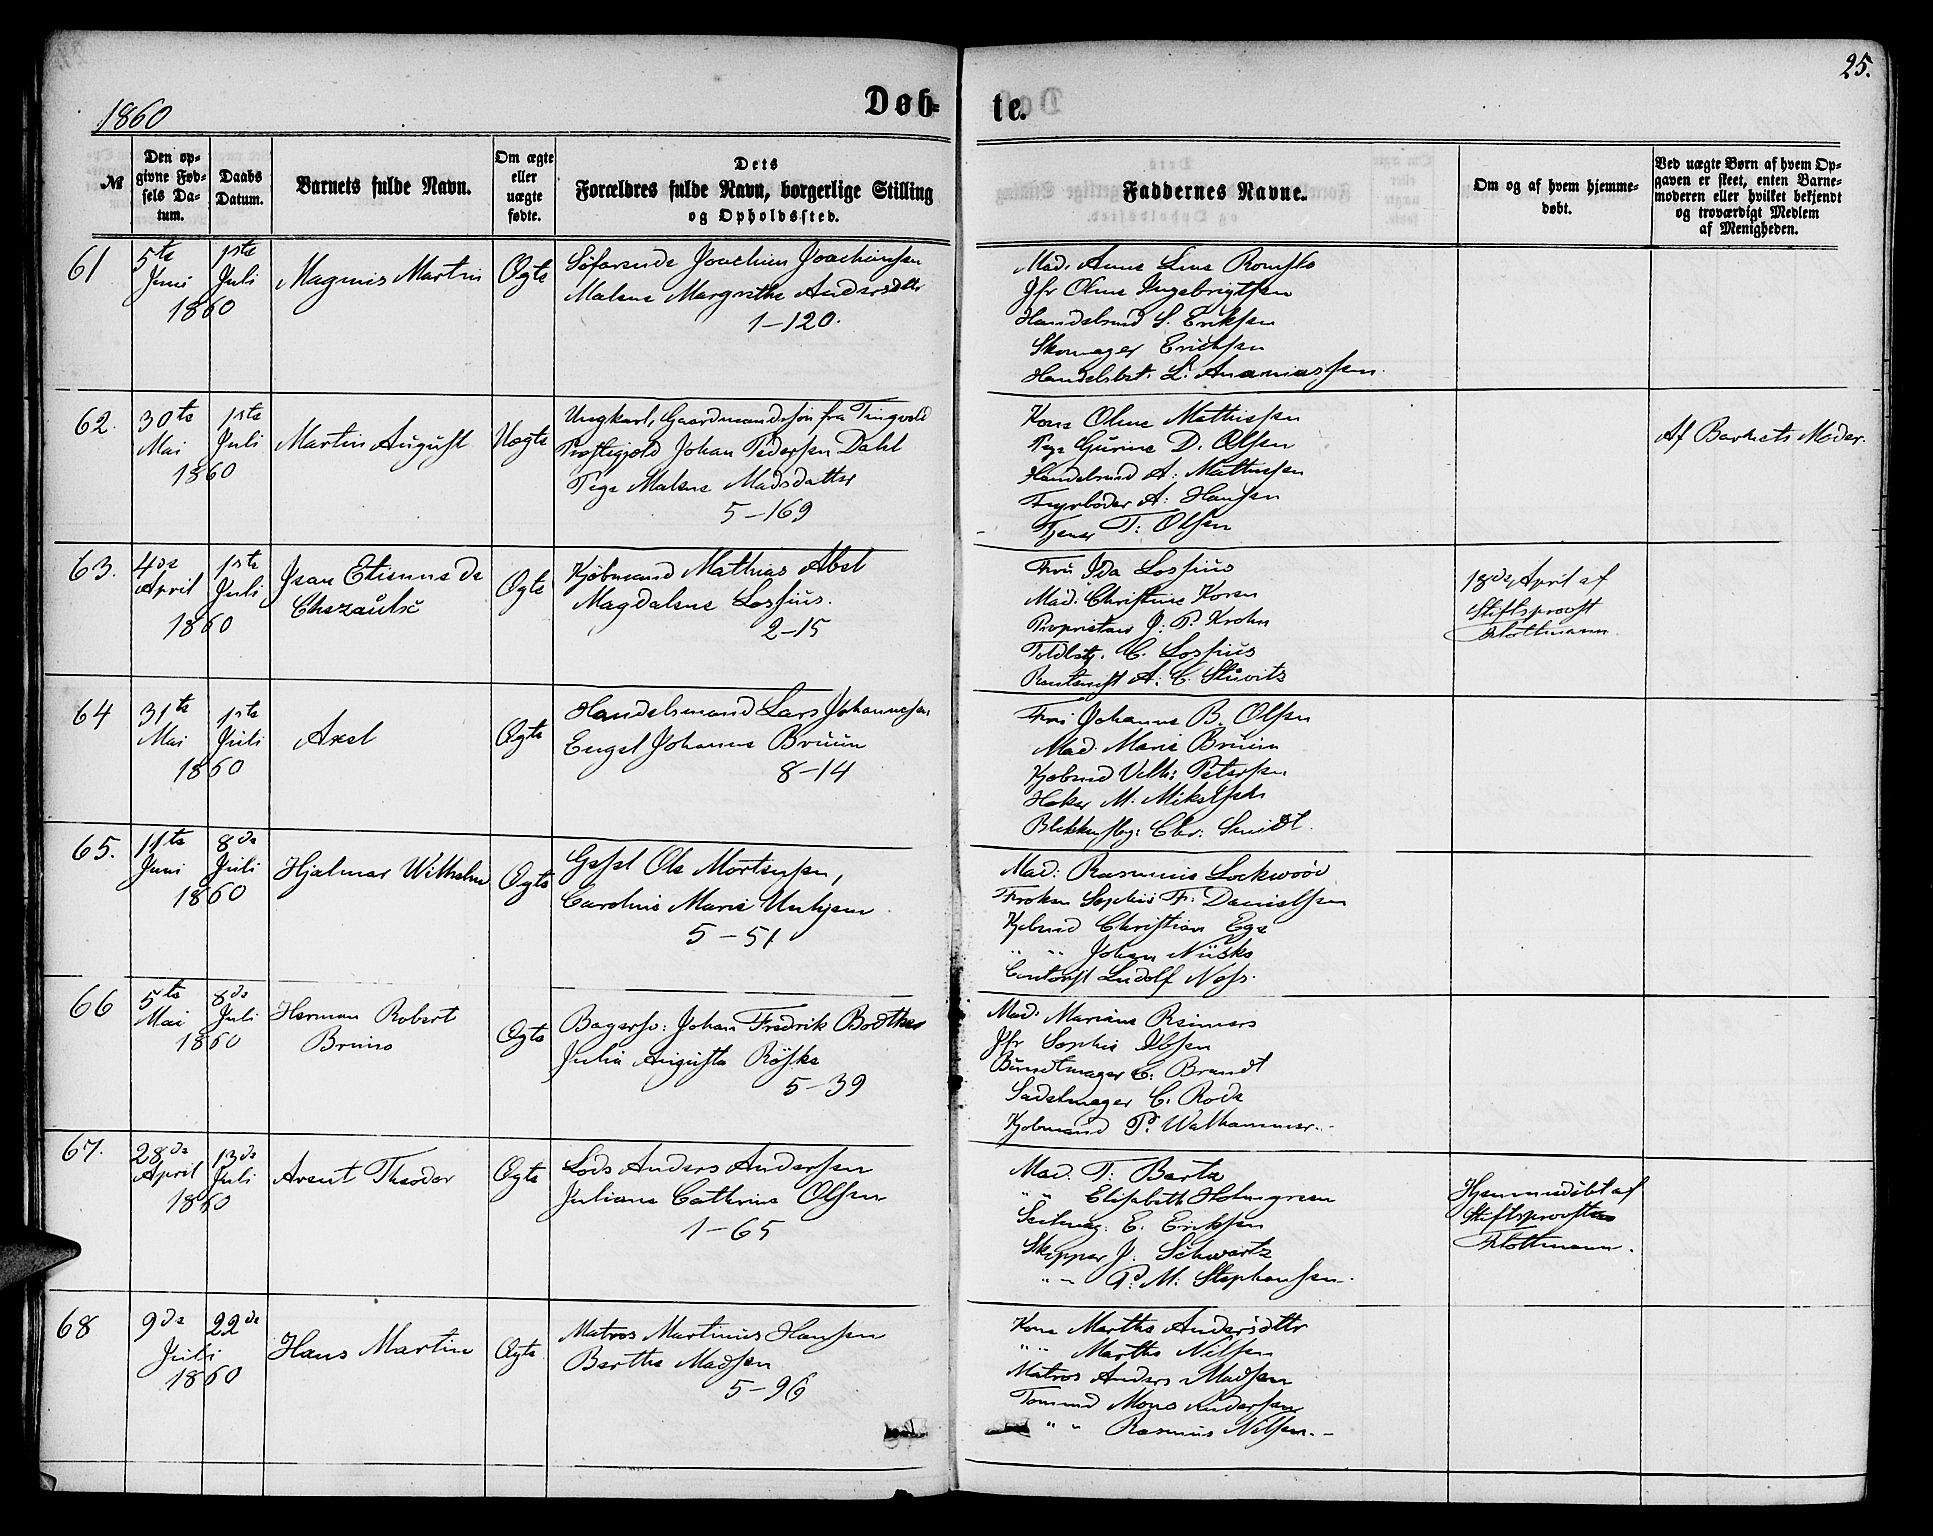 25.
1860
Døb-
te.
№
Den op-
givne Fød-
sels Da-
tum.
Daabs
Datum.
Barnets fulde Navn.
Om ægte
eller
uægte
fødte.
Dets
Forældres fulde Navn, borgerlige Stilling
og Opholdssted.
Faddernes Navne.
Om og af hvem hjemme-
døbt.
Ved uægte Børn af hvem Op-
gaven er skeet, enten Barne-
moderen eller hvilket bekjendt
og troværdigt Medlem
af Menigheden.
61
5te
Juni
1ste
Juli
1860
Magnus Martin
Ægte
Søfarende Joachim Joachimsen
Malene Margrethe Andersdttr
1-120.
Mad. Anne Line
Jfr Oline Ingebrigtsen
Handelsmd S. Eriksen
Skomager Erichsen
Handelsbet. L. Ananiassen.
62.
30te
Mai
1ste
Juli
1860
Martin August
Uægte
Ungkarl, Gaardmandssøn fra Tingvold
Præstegjeld Johan Pedersen Dahl
Pige Malene Madsdatter
5-169
Kone Oline Mathissen
Pige Gurine D. Olsen
Handelsmd A. Mathiesen
Fyrbøder A. Hansen
Tjener T. Olsen
Af Barnets Moder.
63.
4de
April
1ste
Juli
1860
Jean Etienne de
Ægte
Kjøbmand Mathias Abel
Magdalene Lossius.
2-15
Fru Ida Lossius
Mad. Christine Koren
Proprietær J. P. Krohn
C. Lossius
A. C. Stuvitz
18de April af
Stiftsprovst
Flottmann.
64
31te
Mai
1ste
Juli
1860
Axel
Ægte
Handelsmand Lars Johannesen
Engel Johanne Bruun
8-14
Fru Johanne B. Olsen
Mad. Marie Bruun
Kjøbmd Vilh: Petersen
Høker M. Mikelsen
Blikkenslag: Chr. Smidt.
65.
11te
Juni
8de
Juli
1860
Hjalmar Wilhelm
Ægte
Gesel Ole Mortensen,
Caroline Marie Unhjem
5-51
Mad: Rasmine Lockwood
Frøken Sophie F. Danielsen
Kjøbmd Christian Ege
" " Johan
Contorist Ludolf
66
5te
Mai
8de
Juli
1860
Herman Robert
Bruno
Ægte
Bagersv: Johan Fredrik
Julia Augusta Röske
5-39
Mad. Mariane Reimers
Jfr Sophie Ibsen
Bundtmager C. Brandt
Sadelmager C. Rode
Kjøbmand P. Walhammer.-
67.
28de
April
13de
Juli
1860
Arent Theodor
Ægte
Lods Anders Andersen
Juliane Cathrine Olsen
1-65
Mad. T. Bartz
" " Elisabeth Holmgreen
Seilmag. E. Eriksen
Skipper J. Schwartz
" " P. M. Stephansen.
Hjemmedøbt af
Stiftsprovsten
Flottmann.
68
9de
22de
Juli
1860
Hans Martin
Ægte
Matros Martinus Hansen
Berthe Madsen
5-96
Kone Marthe Andersdttr
" " Marthe Nilsen
Matros Anders Madsen
Tømmd Mons Andersen
" " Rasmus Nilsen.-